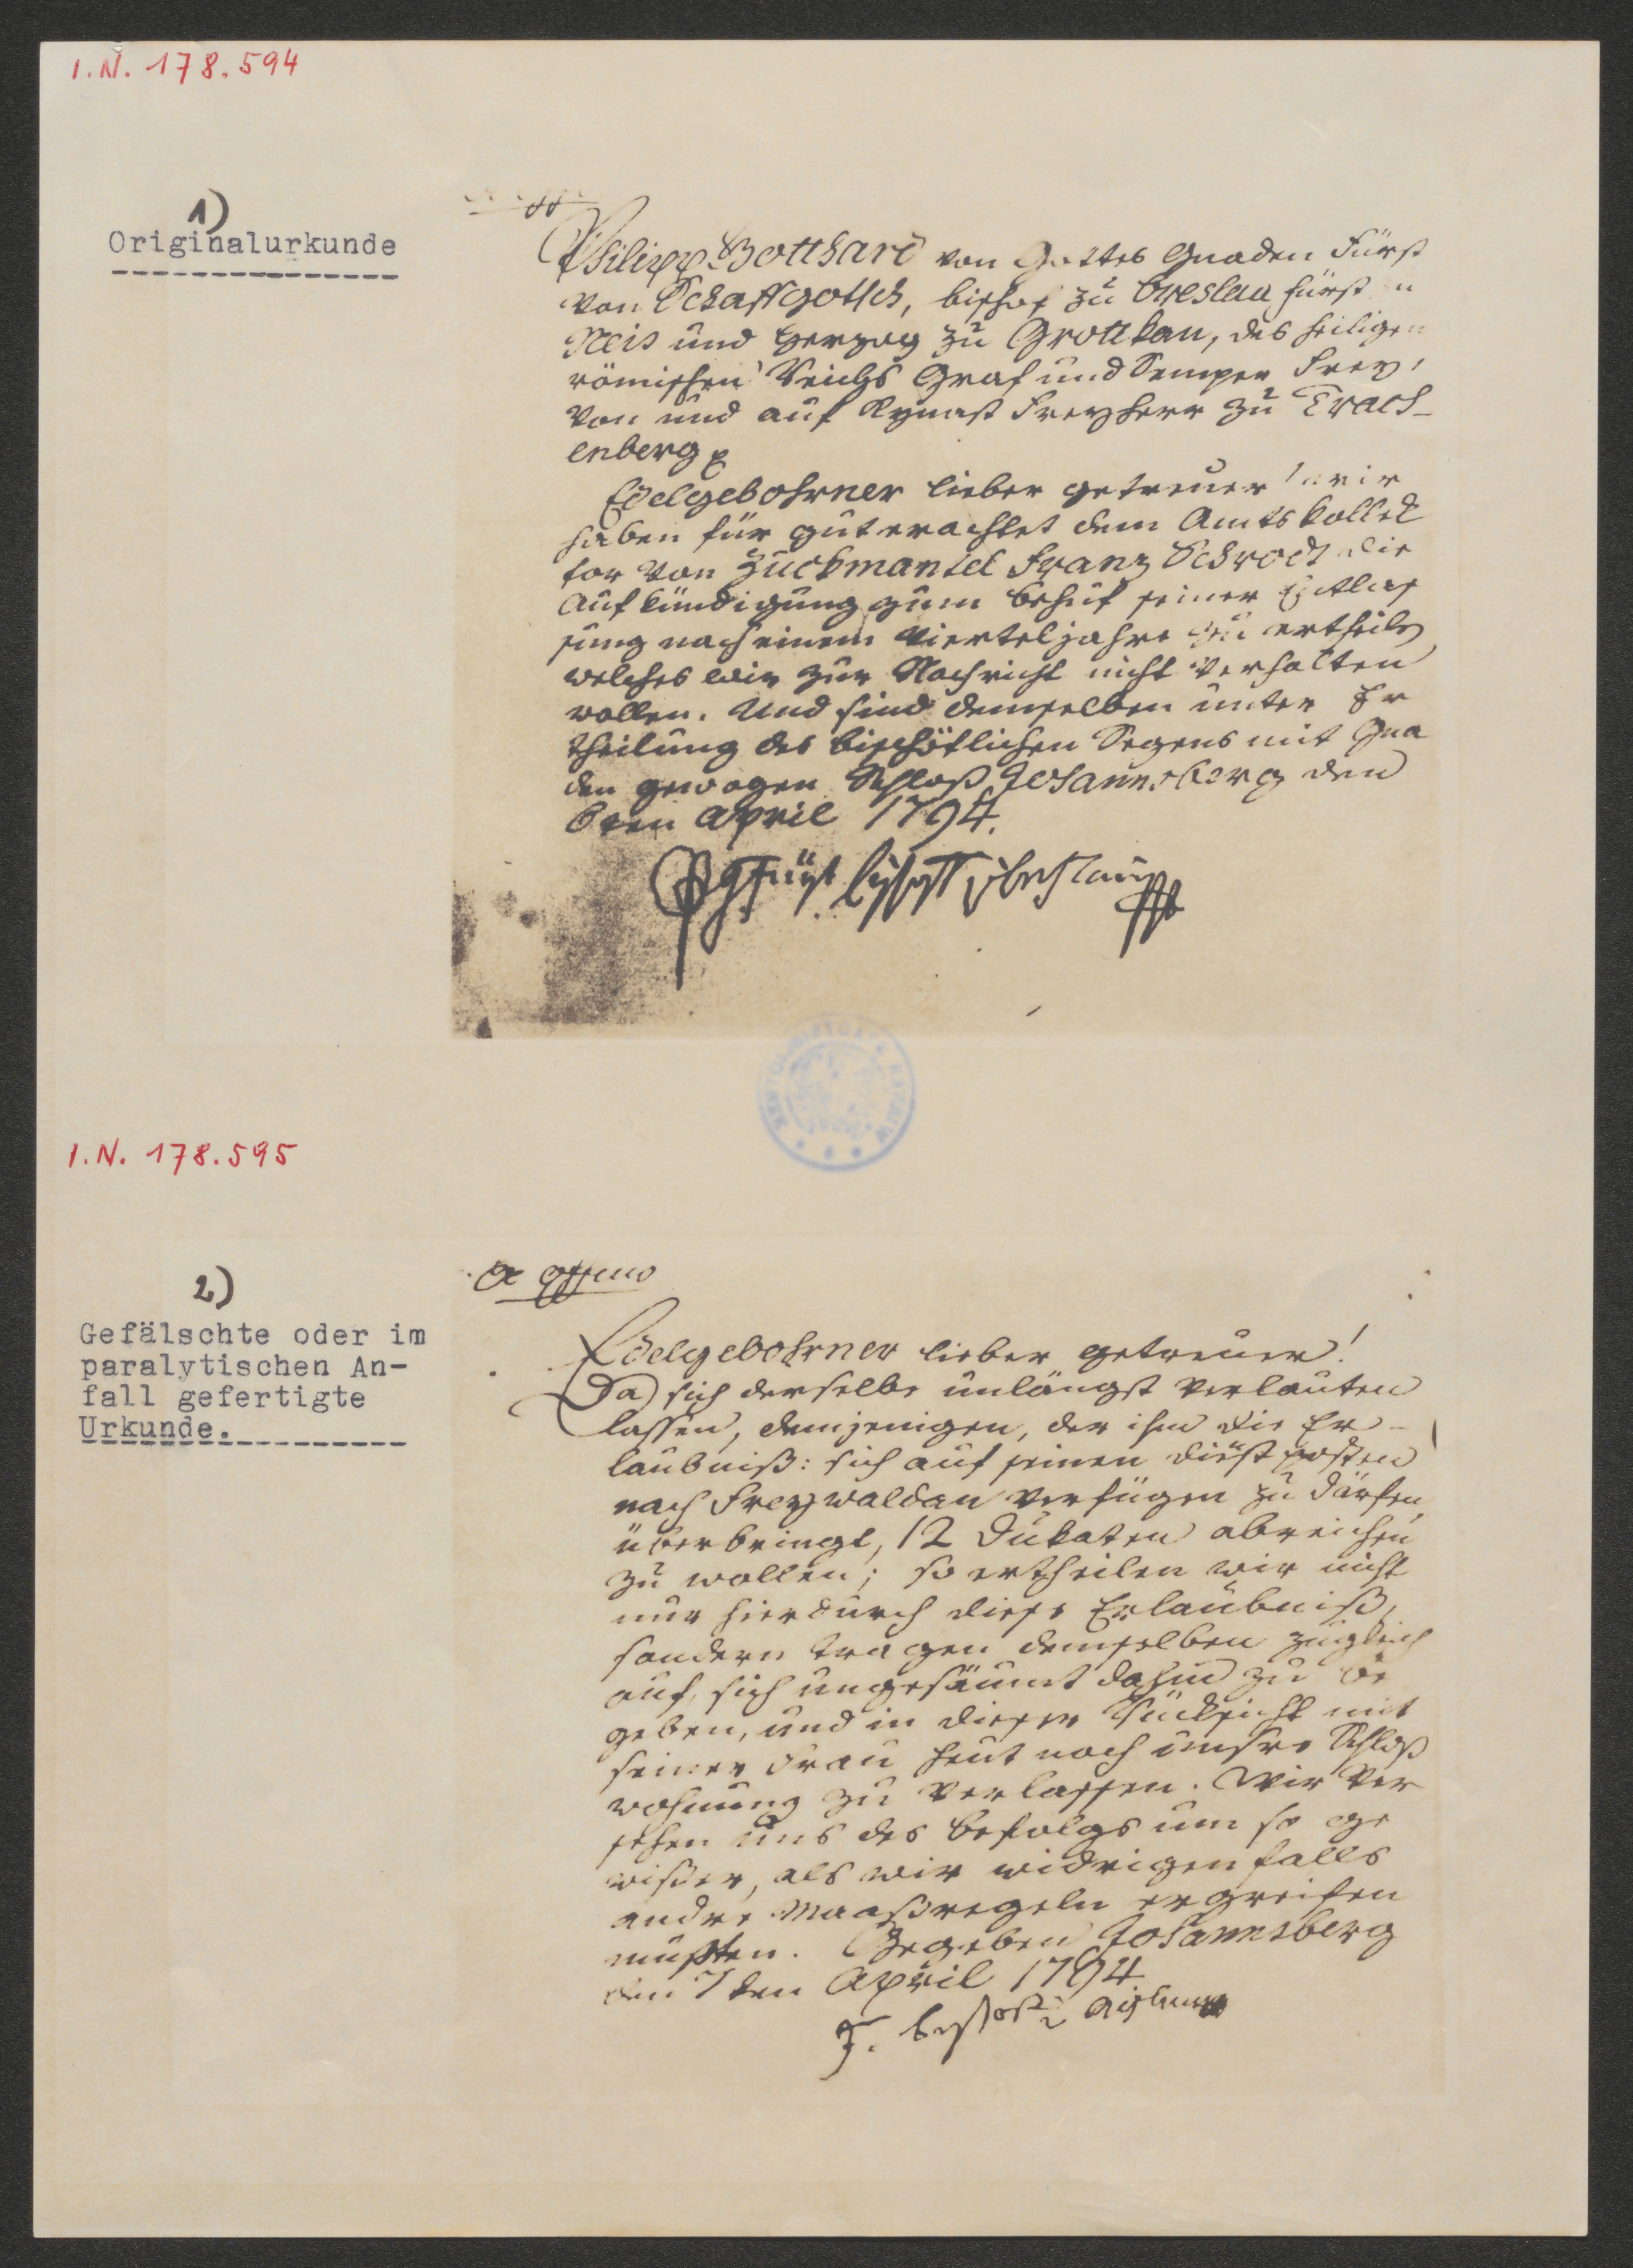 I.N. 178.594
1)
Originalurkunde
Philipp Gotthard von Gottes Gnaden Fürst
von Schaffgotsch, bischof zu breslau fürst
Neis und Herzog zu Grottkau, des heiligen
römischen Reichs Graf und Semper Frey,
von und auf Kynast Freyherr zu Trach-
enberg
Edelgebohrner lieber getreuer! wir
haben für gut erachtet dem Amts kollek
tor von Zuckmantel Franz Schrodt die
Aufkündigung zum behuf seiner Entlas
sung nach einem Vierteljahre zu ertheilen
welches wir zur Nachricht nicht verhalten
wollen. Und sind demselben unter Er
theilung des bischöflichen Segens mit Gna
den gewogen Schloß Johannesberg den
6ten April 1794.
I.N. 178.595
2)
Gefälschte oder im
paralytischen An-
fall gefertigte
Urkunde.
Ex offo
Edelgebohrner lieber getreuer!
Da sich derselbe unlängst verlauten
lassen, demjenigen, der ihm die Er-
laubniß: sich auf seinen dienstposten
nach Freywaldau verfügen zu därfen
überbringt, 12 Dukaten abreichen
zu wollen; so ertheilen wir nicht
nur hierdurch diese Erlaubniß,
sondern tragen demselben zugleich
auf, sich ungesäumt dahin zu be
geben, und in dieser Rücksicht mit
seiner Frau heut noch unsre Schloß
wohnung zu verlassen. Wir ver
sehen uns des befolgs um so ge
wißer, als wir widrigenfalls
andre Maaßregeln ergreifen
müßten. Gegeben Johannesberg
den 7ten April 1794